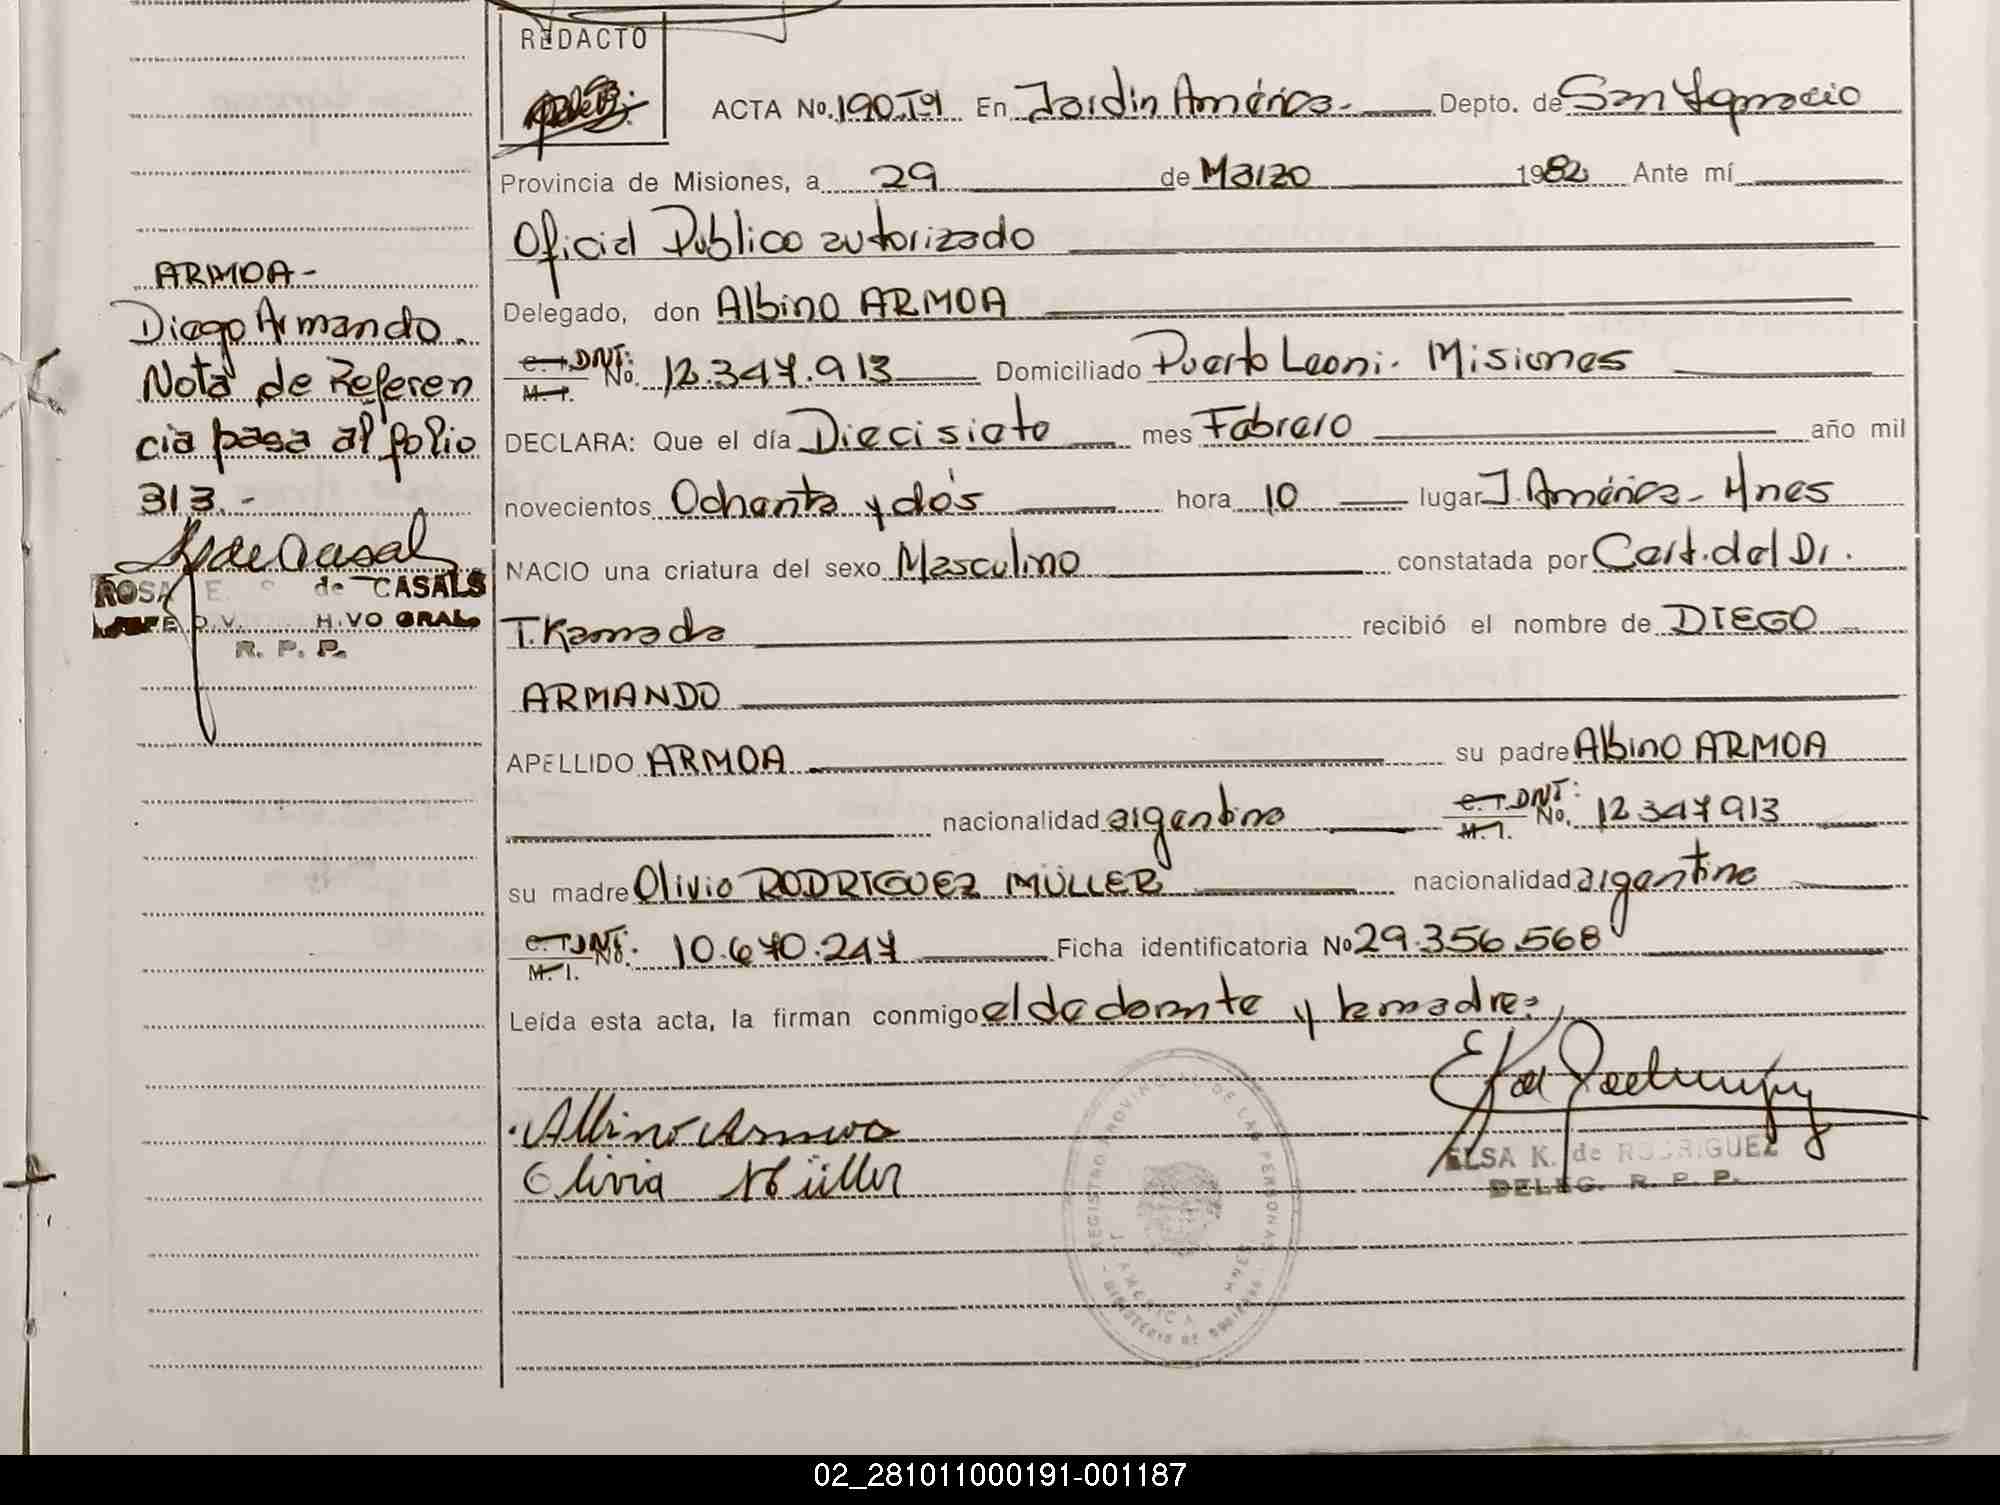 REDACTO
ACTA No. 190.Tº1 En Jardin América.- Depto. de San Ignacio
Provincia de Misiones, a 29 de Marzo 1982 Ante mí
Oficial Publico autorizado
Delegado, don Albino ARMOA
C. I. DNI: No. 12.347.913 Domiciliado Puerto Leoni. Misiones
M. I.
DECLARA: Que el día Diecisiete mes Febrero año mil
novecientos Ochenta y dos hora 10 lugar J. América - Mnes
NACIO una criatura del sexo Masculino constatada por Cert. del Dr.
T. Kamada recibió el nombre de DIEGO
ARMANDO
APELLIDO ARMOA su padre Albino ARMOA
nacionalidad argentina C. I. DNI: No. 12.347.913
M. I.
su madre Olivia RODRIGUEZ MÜLLER nacionalidad argentina
C. I. DNI: No. 10.670.247 Ficha identificatoria No 29.356.568
M. I.
Leída esta acta, la firman conmigo el declarante y la madre.
Albino Armoa
Olivia Müller
ELSA K. de RODRIGUEZ
DELEG. R. P. P.
REGISTRO PROVINCIAL DE LAS PERSONAS
J. AMERICA MNES
MINISTERIO DE GOBIERNO
ARMOA-
Diego Armando.
Nota de Referen
cia pasa al folio
313.-
ROSA E. de CASALS
R. P. P.
02_281011000191-001187